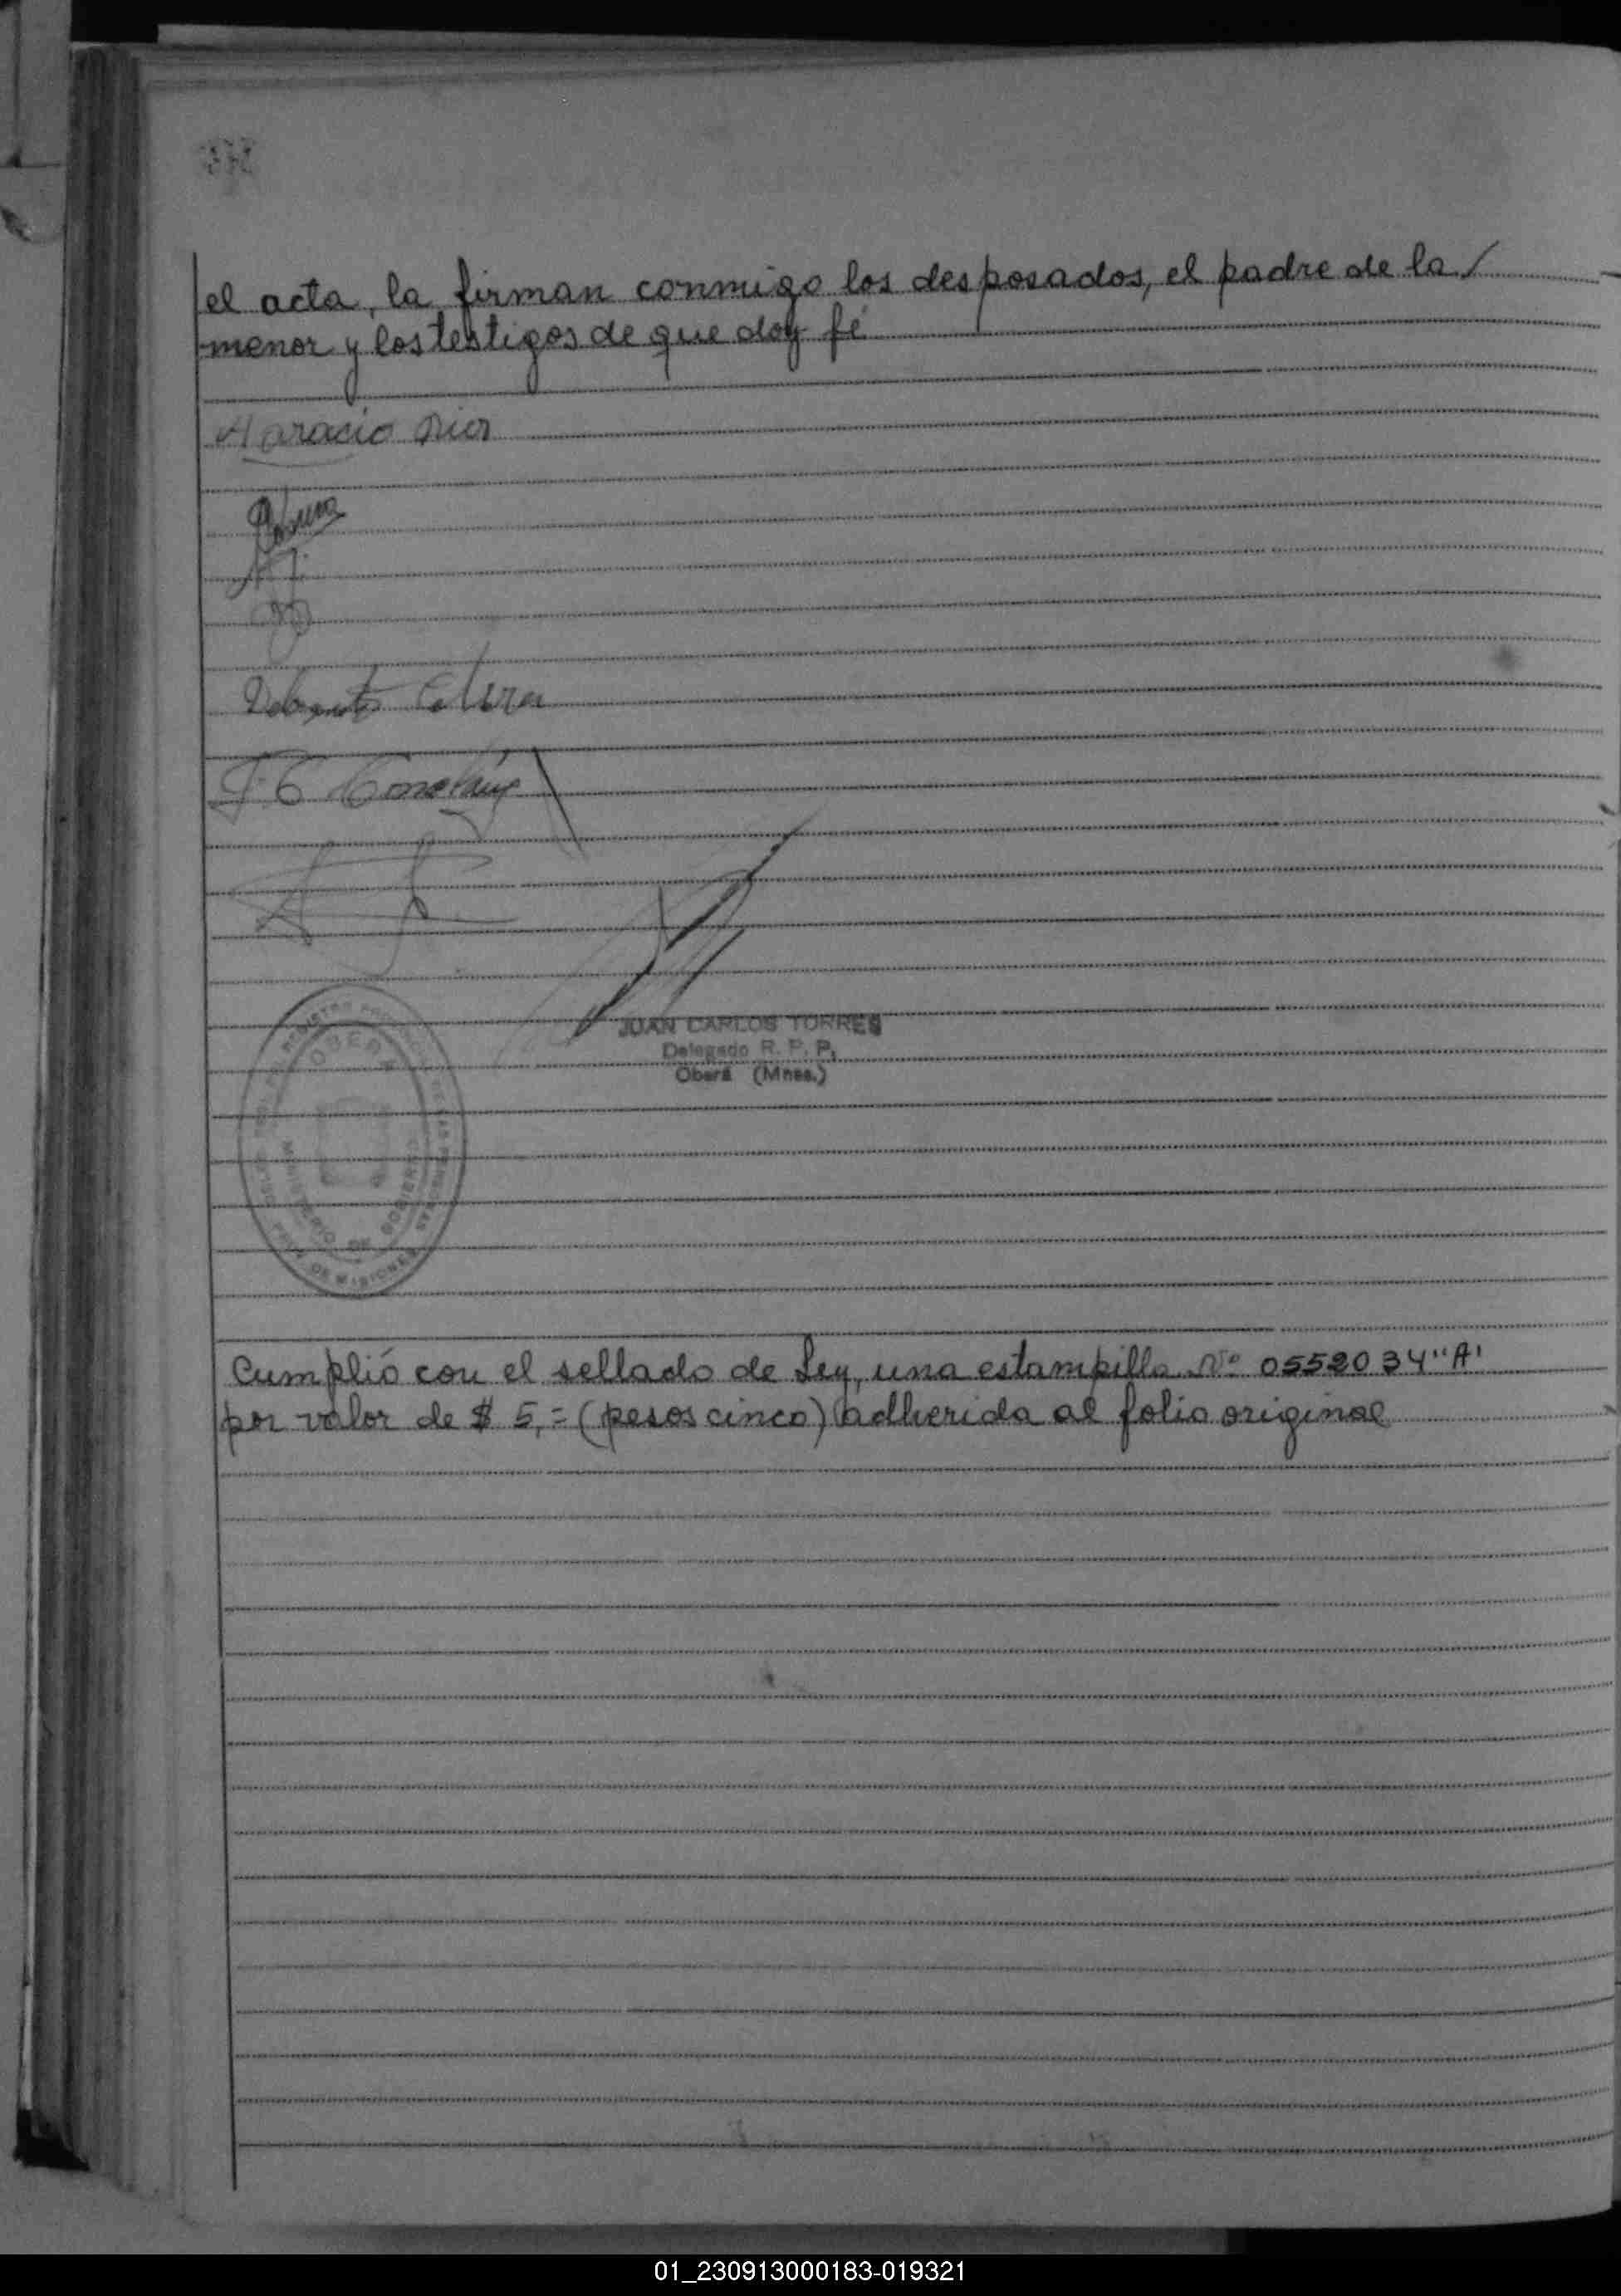 el acta, la firman conmigo los desposados, el padre de la /
menor y los testigos de que doy fé
Horacio
JUAN CARLOS TORRES
Delegado R. P. P.
Oberá (Mnes.)
OBERA
MINISTERIO DE GOBIERNO
DE MISIONES
Cumplió con el sellado de Ley, una estampilla Nº 0552034 "A"
por valor de $ 5,= (pesos cinco) adherida al folio original
01_230913000183-019321